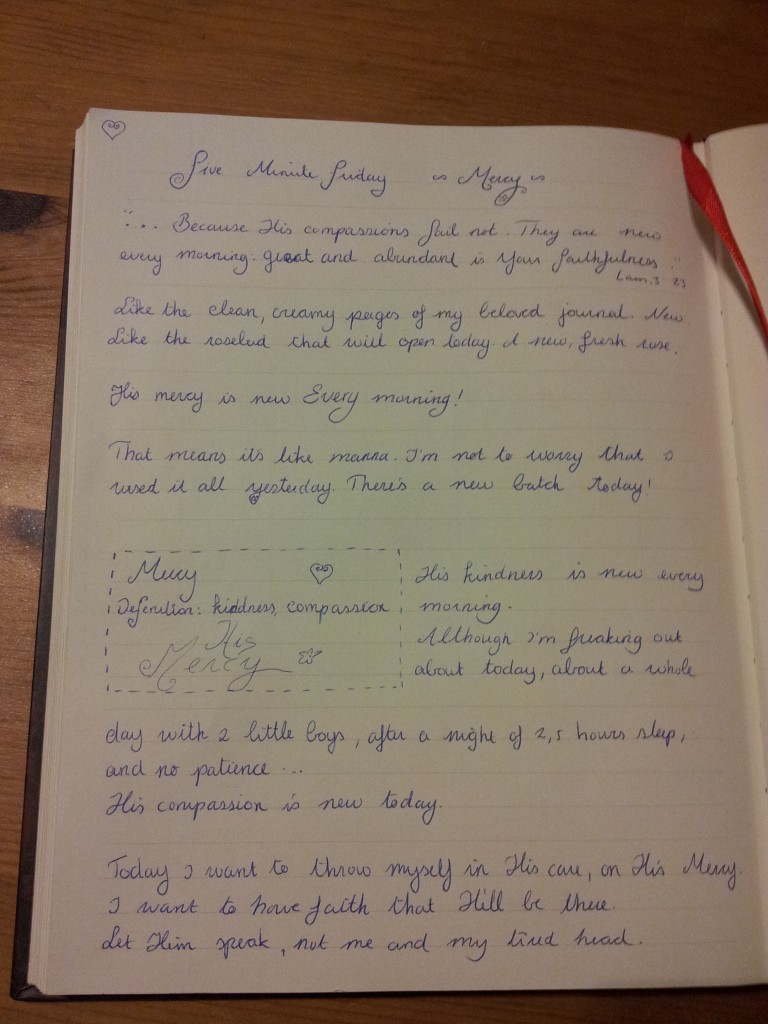 Five Minute Friday ~ Mercy ~
"... Because His compassions fail not. They are new
every morning. great and abundant is Your faithfulness."
Lam. 3 23
Like the clean, creamy pages of my beloved journal. New.
Like the rosebud that will open today. A new, fresh rose.
His mercy is new Every morning!
That means it's like manna. I'm not to worry that I
used it all yesterday. There's a new batch today!
Mercy
Definition: kindness, compassion
His
Mercy
His kindness is new every
morning.
Although I'm freaking out
about today, about a whole
day with 2 little boys, after a night of 2,5 hours sleep,
and no patience ...
His compassion is new today.
Today I want to throw myself in His care, on His Mercy.
I want to have faith that He'll be there.
Let Him speak, not me and my tired head.